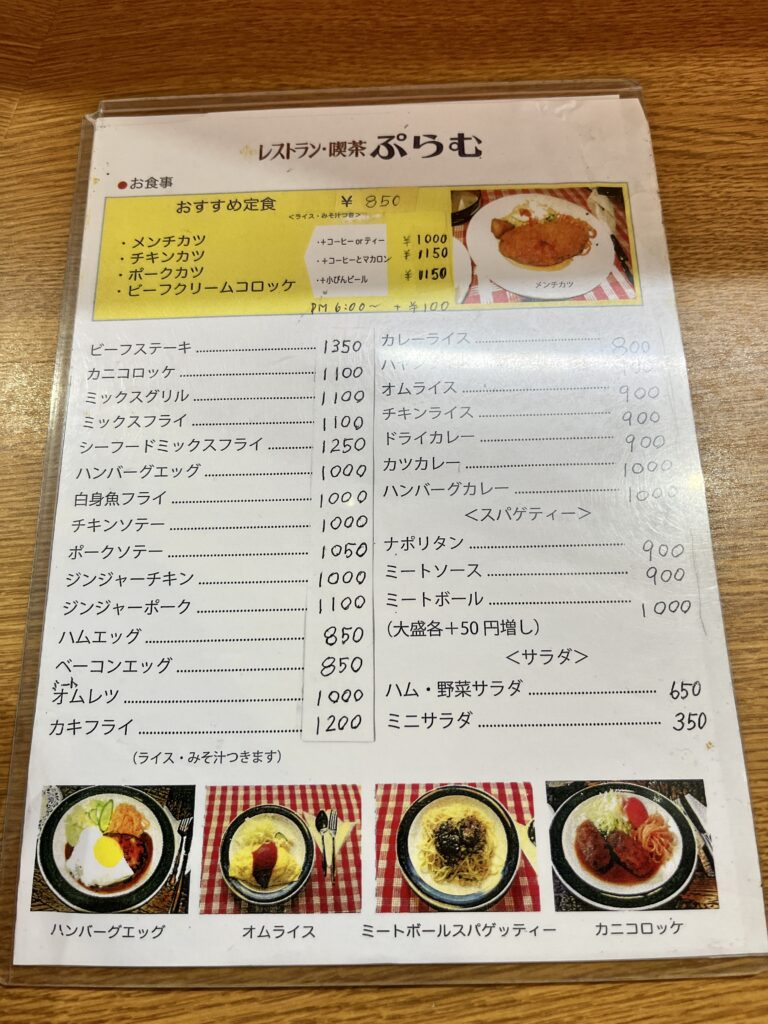 レストラン・喫茶 ぷらむ
●お食事
おすすめ定食 ¥850
<ライス・みそ汁つき>
・メンチカツ
・チキンカツ
・ポークカツ
・ビーフクリームコロッケ
・+コーヒー or ティー ¥1000
・+コーヒーとマカロン ¥1150
・+小びんビール ¥1150
PM 6:00～ +¥100
メンチカツ
ビーフステーキ 1350
カニコロッケ 1100
ミックスグリル 1100
ミックスフライ 1100
シーフードミックスフライ 1250
ハンバーグエッグ 1000
白身魚フライ 1000
チキンソテー 1000
ポークソテー 1050
ジンジャーチキン 1000
ジンジャーポーク 1100
ハムエッグ 850
ベーコンエッグ 850
ミート
オムレツ 1000
カキフライ 1200
(ライス・みそ汁つきます)
カレーライス 800
オムライス 900
チキンライス 900
ドライカレー 900
カツカレー 1000
ハンバーグカレー 1000
<スパゲティー>
ナポリタン 900
ミートソース 900
ミートボール 1000
(大盛各+50円増し)
<サラダ>
ハム・野菜サラダ 650
ミニサラダ 350
ハンバーグエッグ
オムライス
ミートボールスパゲッティー
カニコロッケ